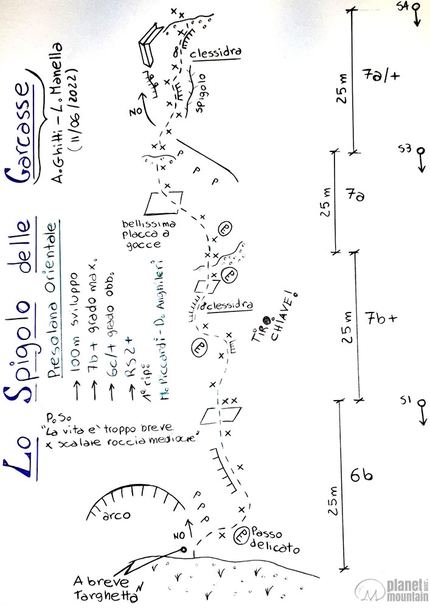 Lo Spigolo delle Garcasse
A. Ghitti - L. Manella
(11/06/2022)
Presolana Orientale
→ 100m sviluppo
→ 7b+ grado max.
→ 6c/+ grado obb.
→ RS2+
1ª rip:
M. Piccardi - D. Anghileri
P.S.
"La vita e' troppo breve
x scalare roccia mediocre"
S4
clessidra
spigolo
NO
25m
7a/+
S3
P
P
P
bellissima
placca a
gocce
25m
7a
P
P
clessidra
P
TIRO
CHIAVE!
25m
7b+
S1
25m
6b
arco
P
P
P
P
NO
P
Passo
delicato
A breve
Targhetta
planet
mountain